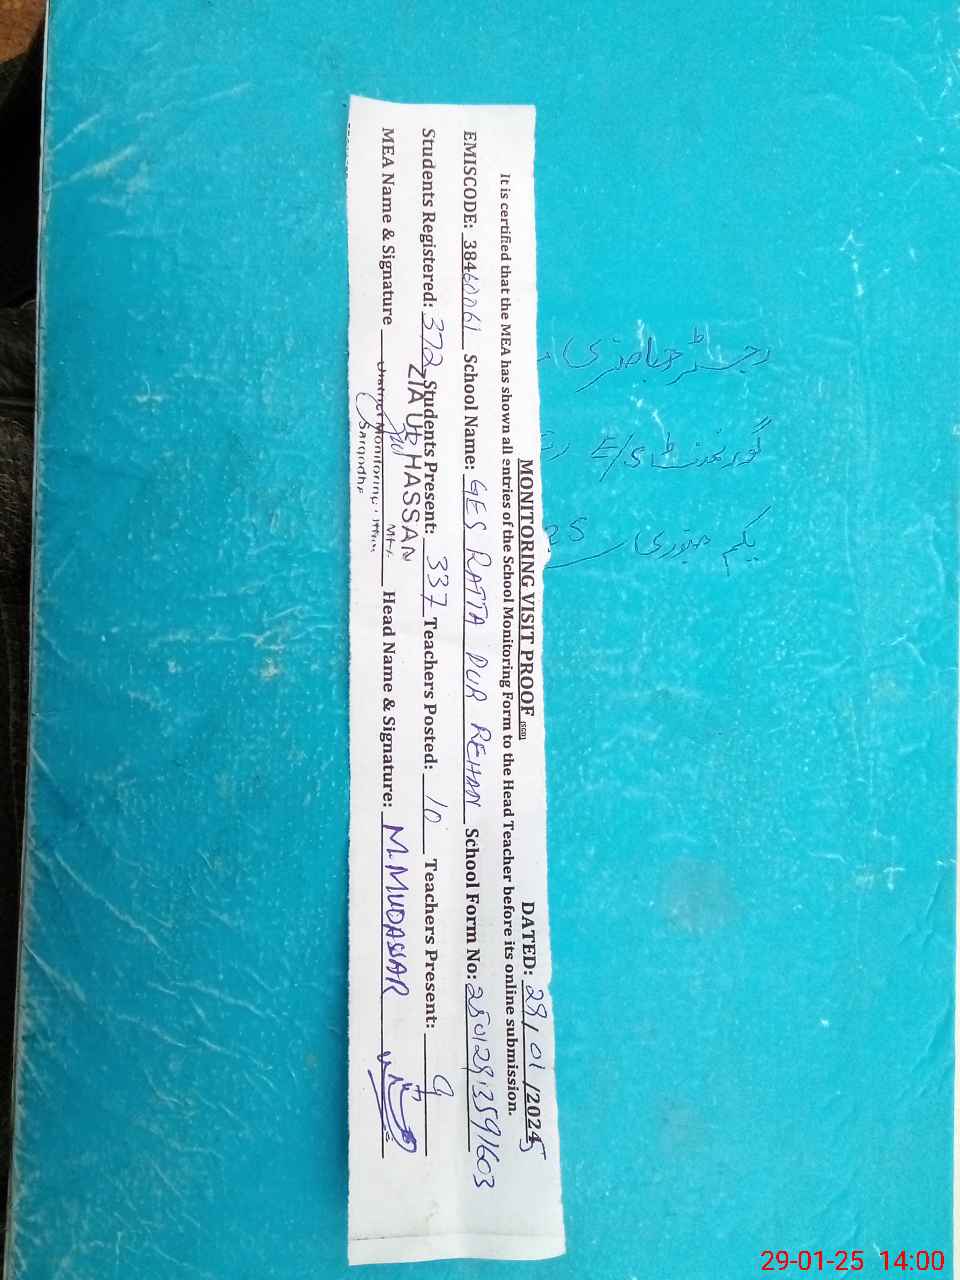 MONITORING VISIT PROOF (SGD) DATED: 29/01/20245
It is certified that the MEA has shown all entries of the School Monitoring Form to the Head Teacher before its online submission.
EMISCODE: 38460061 School Name: GES RATTA PUR REHAN School Form No: 25012913591603
Students Registered: 372 Students Present: 337 Teachers Posted: 10 Teachers Present: 9
MEA Name & Signature Head Name & Signature: M. MUDASSAR
ZIA UL HASSAN
District Monitoring
Sargodha
رجسٹر حاضری
گورنمنٹ E/S
یکم جنوری 25
29-01-25 14:00